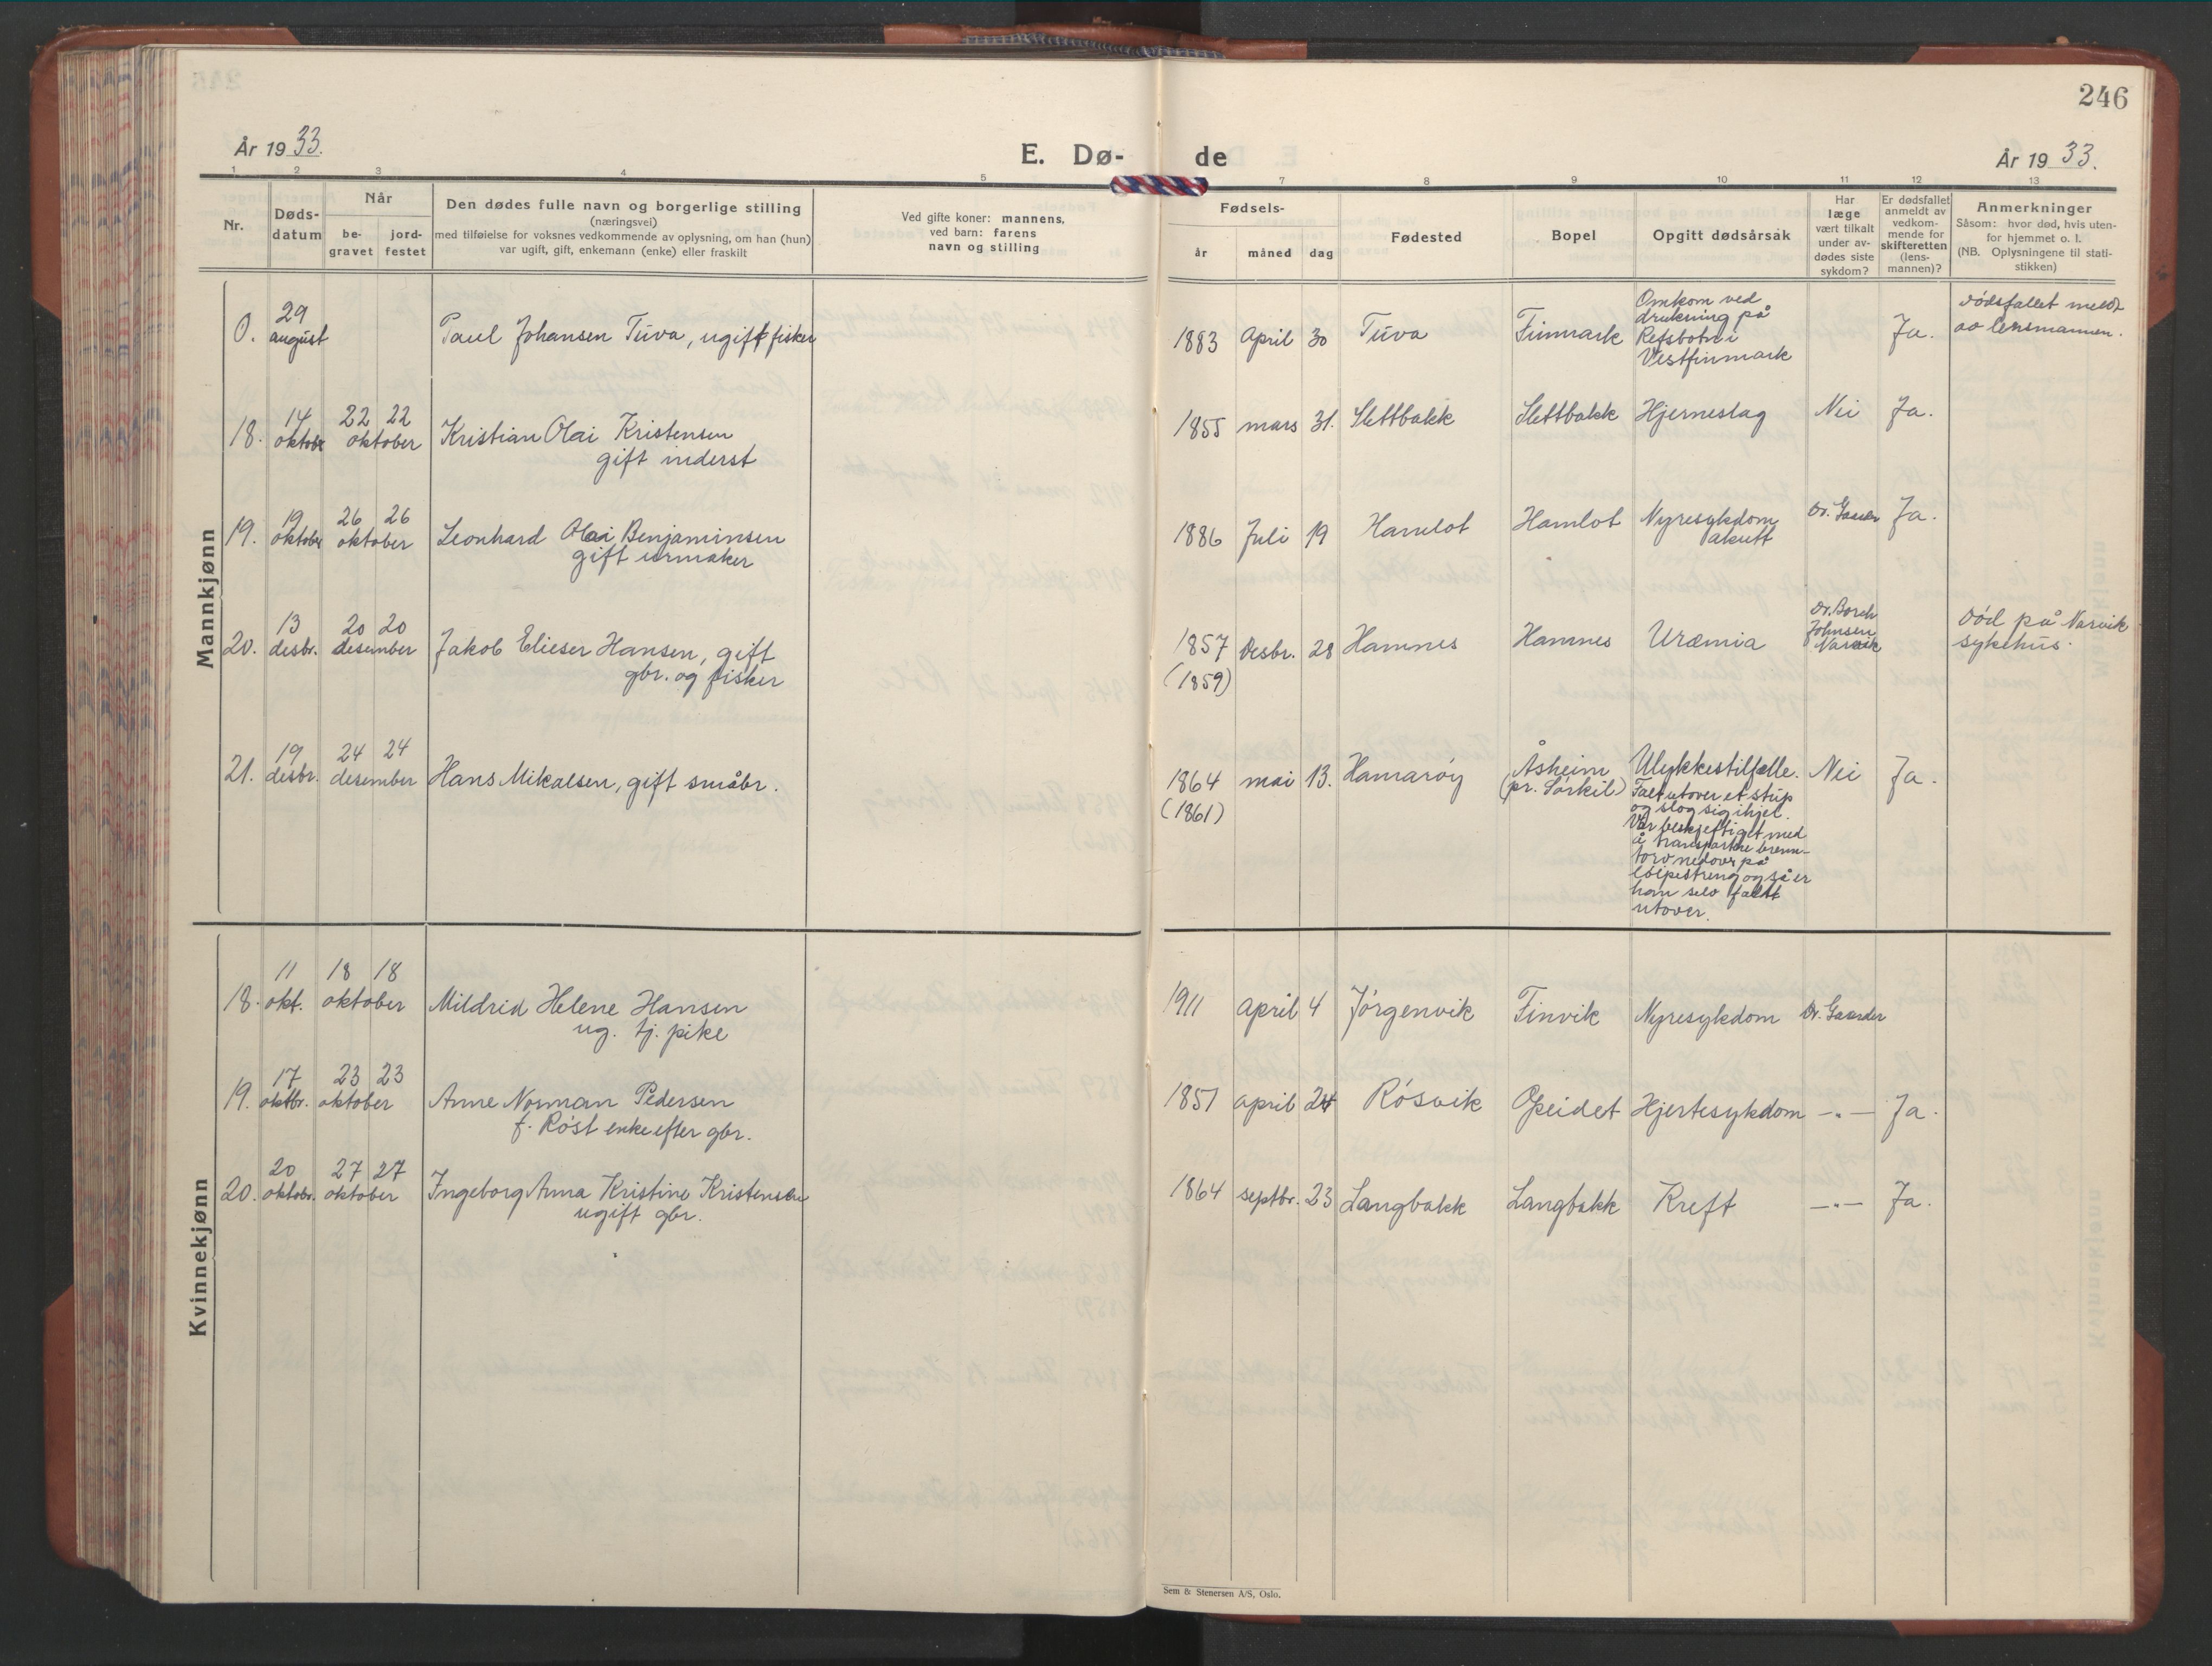 246
År 1933.
E. Dø- de
År 1933.
1 2 3 4 5 7 8 9 10 11 12 13
Nr.
Døds-
datum
Når
be-
gravet
jord-
festet
Den dødes fulle navn og borgerlige stilling
(næringsvei)
med tilføielse for voksnes vedkommende av oplysning, om han (hun)
var ugift, gift, enkemann (enke) eller fraskilt
Ved gifte koner: mannens,
ved barn: farens
navn og stilling
Fødsels-
år måned dag
Fødested
Bopel
Opgitt dødsårsak
Har
læge
vært tilkalt
under av-
dødes siste
sykdom?
Er dødsfallet
anmeldt av
vedkom-
mende for
skifteretten
(lens-
mannen)?
Anmerkninger
Såsom: hvor død, hvis uten-
for hjemmet o. l.
(NB. Oplysningene til stati-
stikken)
Mannkjønn
0. 29 august
Paul Johansen Tuva, ugift fisker
1883 April 30 Tuva Finmark
Omkom ved
drukning på
Refsbotn i
Vestfinmark
Ja.
Dødsfallet meldt
av lensmannen.
18. 14 oktober 22 22 oktober
Kristian Olai Kristensen
gift inderst
1855 mars 31. Slettbakk Slettbakk Hjerneslag Nei Ja.
19. 19 oktober 26 26 oktober
Leonhard Olai Benjaminsen
gift urmaker
1886 Juli 19 Hamlot Hamlot Nyresykdom
akutt
Dr. Gaarder Ja.
20. 13 desbr. 20 20 desember
Jakob Elieser Hansen, gift
gbr. og fisker
1857 Desbr. 28 Hamnes Hamnes Uræmia
(1859)
Dr. Borch
Johnsen
Narvik
Død på Narvik
sykehus.
21. 19 desbr. 24 24 desember
Hans Mikalsen, gift småbr.
1864 mai 13. Hamarøy
(1861)
Åsheim
(pr. Sørkil)
Ulykkestilfælle.
Falt utover et stup
og slog sig ihjel.
Var beskjeftiget med
å transportere brenn-
torv nedover på
løipestreng og så er
han selv falt
utover.
Nei Ja.
Kvinnekjønn
18. 11 okt. 18 18 oktober
Mildrid Helene Hansen
ug. tj. pike
1911 april 4 Jørgenvik Finvik Nyresykdom Dr. Gaarder
19. 17 oktbr. 23 23 oktober
Anne Norman Pedersen
f. Røst enke efter gbr.
1851 april 24 Røsvik Opeidet Hjertesykdom —„— Ja.
20. 20 oktobr. 27 27 oktober
Ingeborg Anna Kristine Kristensen
ugift gbr.
1864 septbr. 23 Langbakk Langbakk Kreft —„— Ja.
Sem & Stenersen A/S, Oslo.